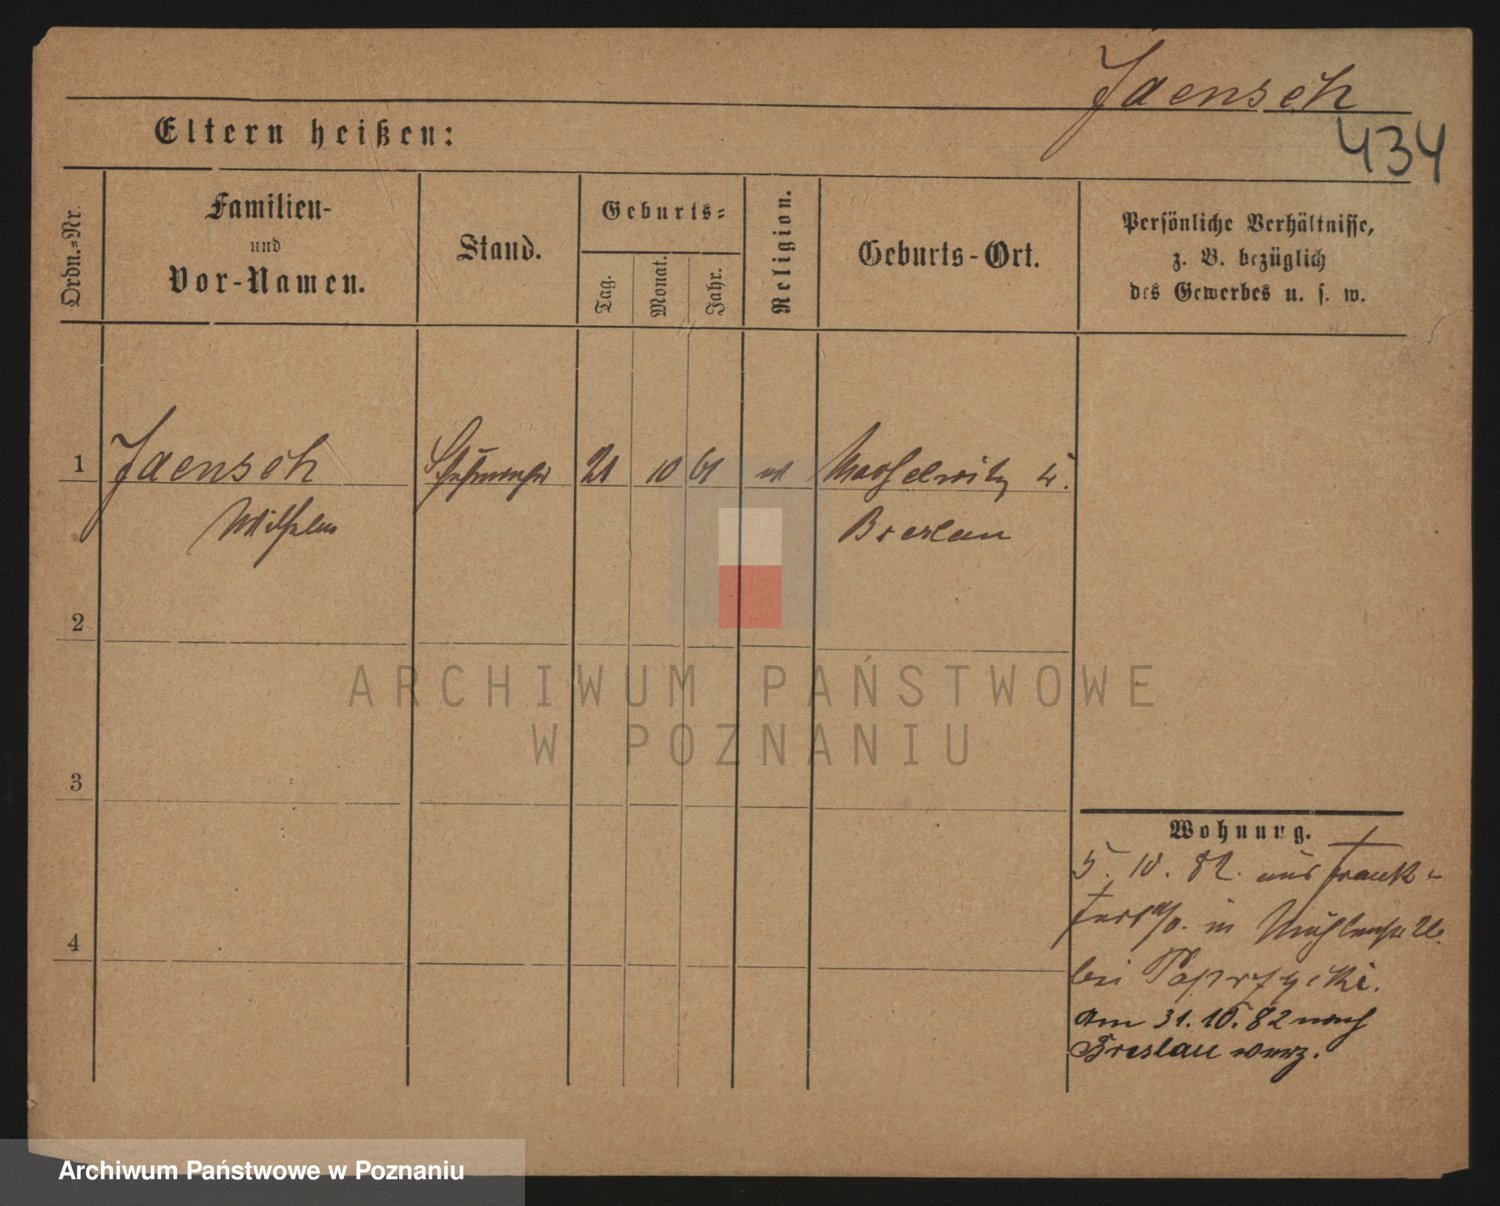 Jaensch
434
Eltern heißen:
Ordn.=Nr.
Familien-
und
Vor-Namen.
Stand.
Geburts=
Tag.
Monat.
Jahr.
Religion.
Geburts-Ort.
Persönliche Verhältnisse,
z. B. bezüglich
des Gewerbes u. s. w.
1
Jaensch
21 10 61
Wilhelm
Breslau
2
3
4
Wohnung.
5. 10. 82. aus Frank-
furt a/O. in
bei Paprzycki.
Am 31.10.82 nach
Breslau verz.
ARCHIWUM PAŃSTWOWE
W POZNANIU
Archiwum Państwowe w Poznaniu